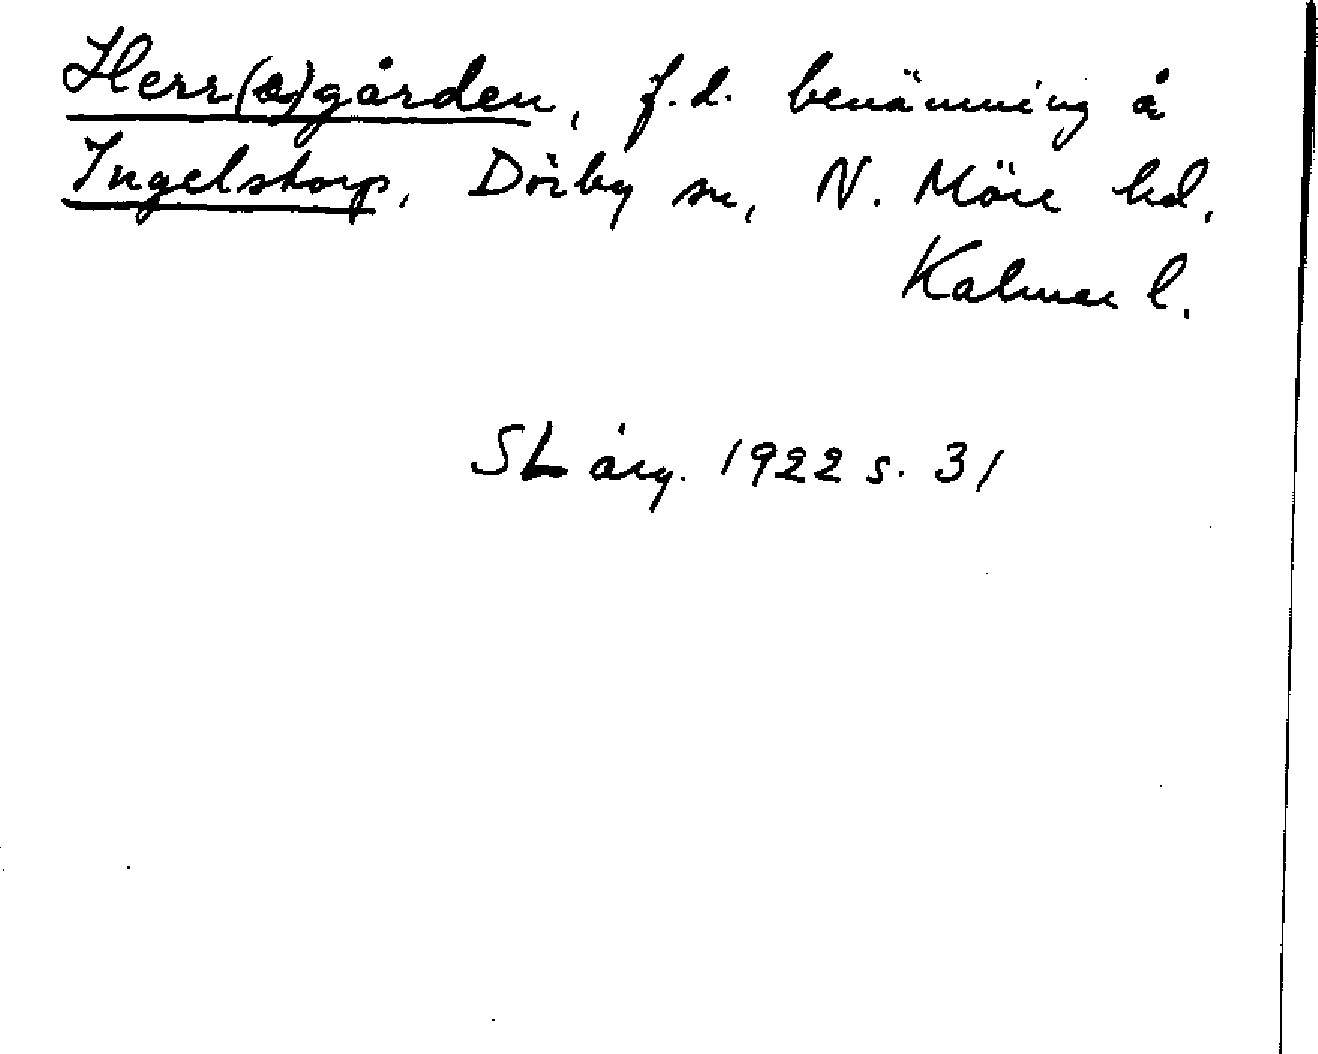 Herr(a)gården, f.d. benämning å
Ingelstorp, Dörby sn, N. Möre hd,
Kalmar l.
SL årg. 1922 s. 31